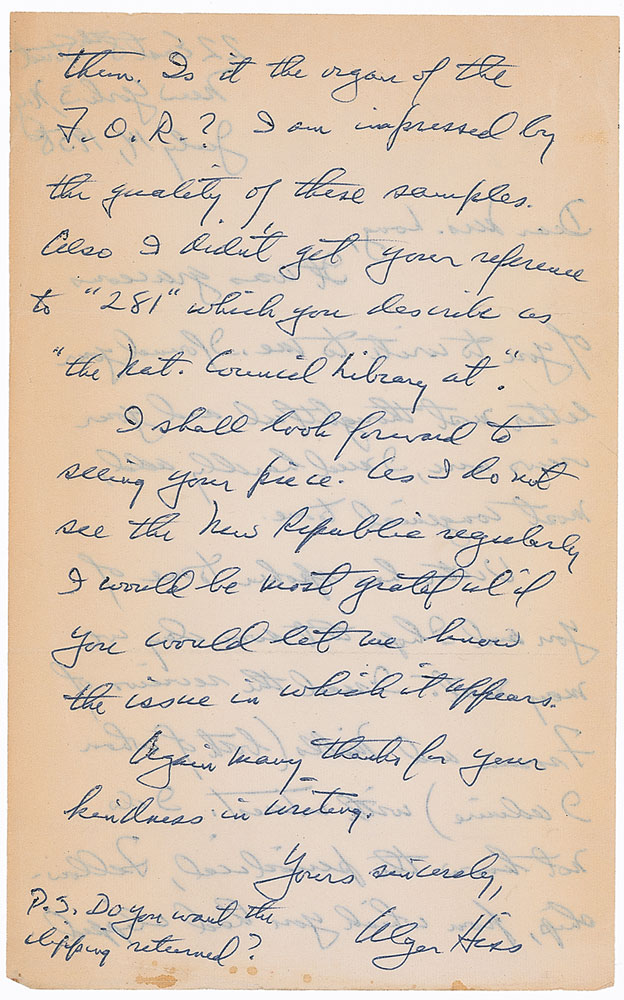 them. Is it the organ of the
F.O.R.? I am impressed by
the quality of these samples.
Also I didn't get your reference
to "281" which you describe as
"the Nat. Council Library at".
I shall look forward to
seeing your piece. As I do not
see the New Republic regularly
I would be most grateful if
you would let me know
the issue in which it appears.
Again many thanks for your
kindness in writing.
Yours sincerely,
Alger Hiss
P.S. Do you want the
clipping returned?